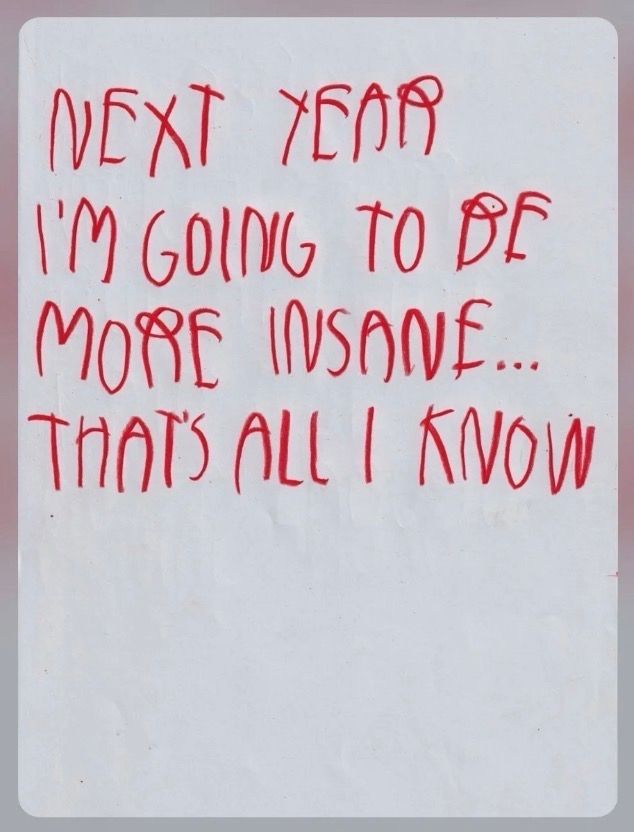 NEXT YEAR
I'M GOING TO BE
MORE INSANE...
THAT'S ALL I KNOW